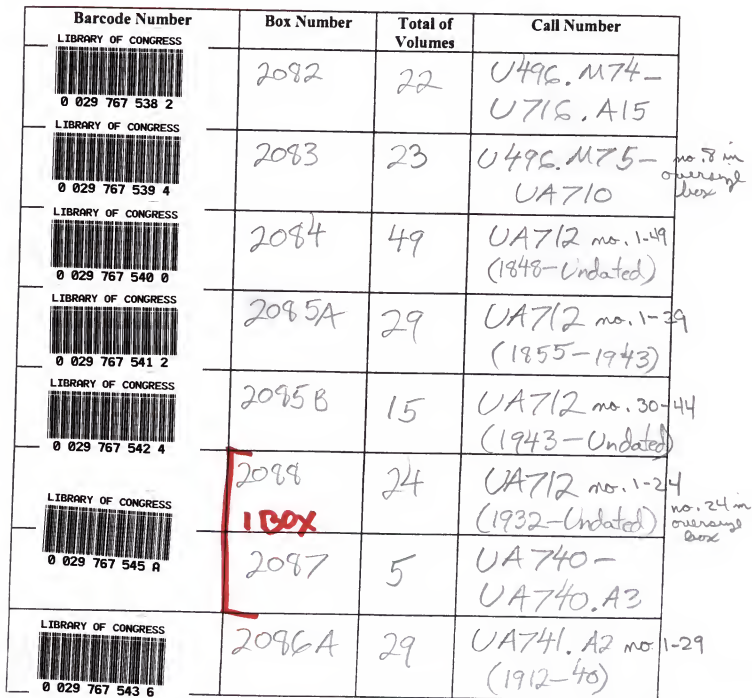 Barcode Number Box Number Total of Volumes Call Number
LIBRARY OF CONGRESS
0 029 767 538 2
2082 22 U496.M74–
U716.A15
LIBRARY OF CONGRESS
0 029 767 539 4
2083 23 U496.M75– no. 8 in
UA710 oversize
box
LIBRARY OF CONGRESS
0 029 767 540 0
2084 49 UA712 no. 1-49
(1848–Undated)
LIBRARY OF CONGRESS
0 029 767 541 2
2085A 29 UA712 no. 1-39
(1855–1943)
LIBRARY OF CONGRESS
0 029 767 542 4
2085B 15 UA712 no. 30-44
(1943–Undated)
2088 24 UA712 no. 1-24
1 BOX (1932–Undated) no. 24 in
oversize
box
LIBRARY OF CONGRESS
0 029 767 545 A
2087 5 UA740–
UA740.A3
LIBRARY OF CONGRESS
0 029 767 543 6
2086A 29 UA741.A2 no 1-29
(1912–40)